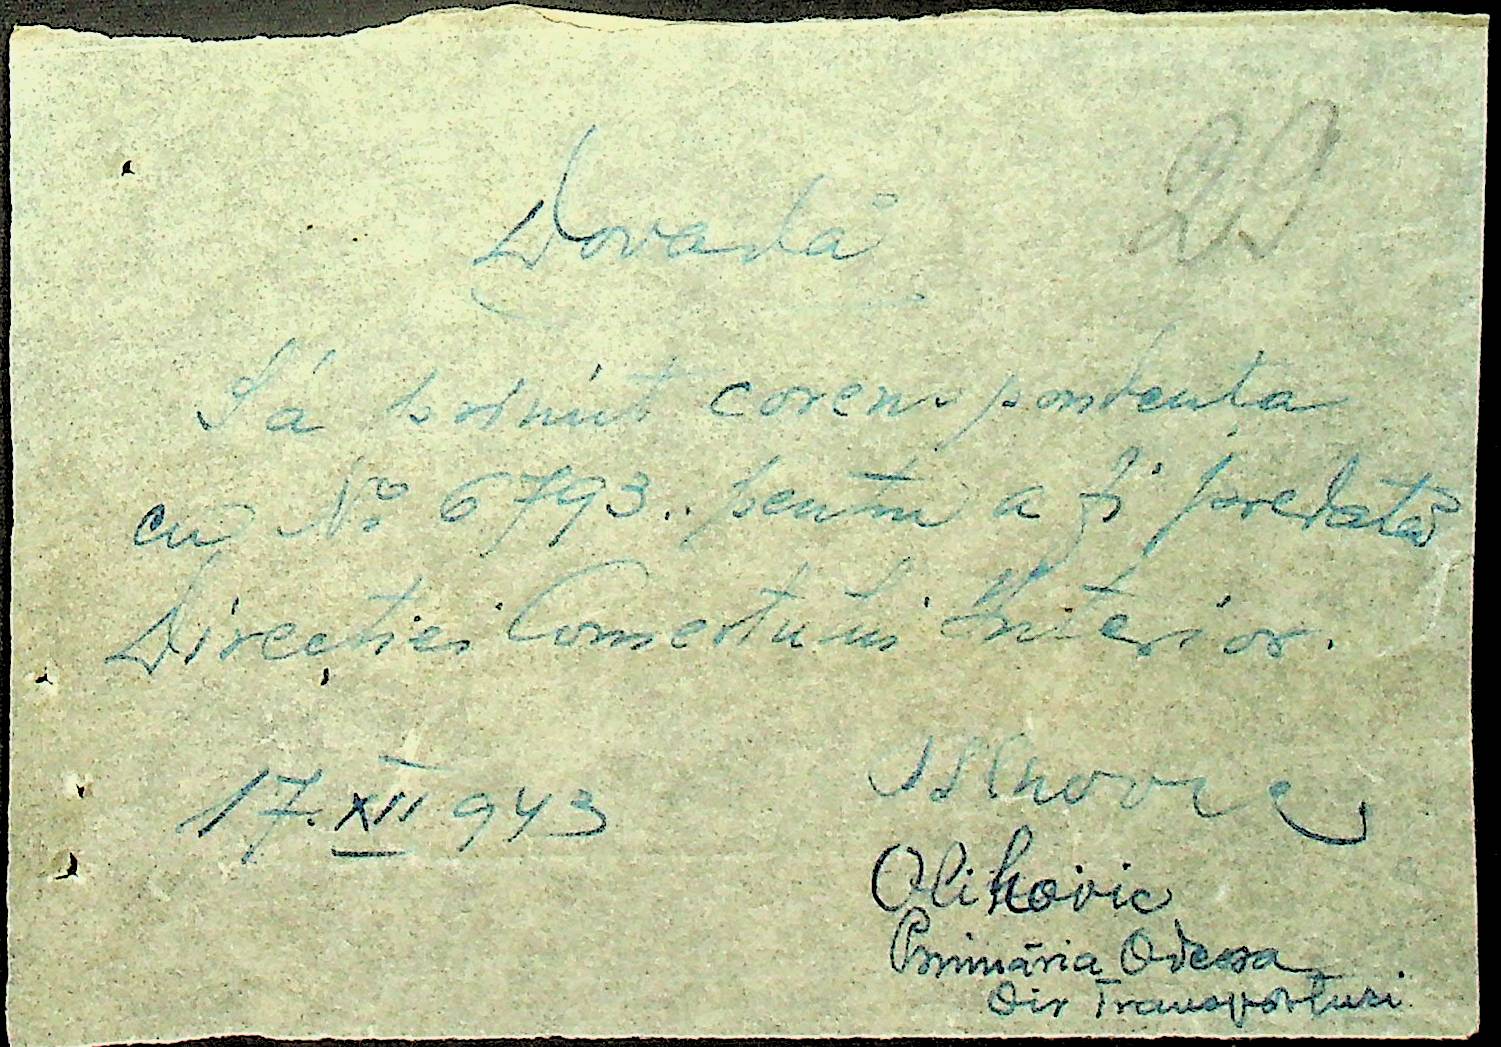 29
Dovadă
S'á primit corespondența
cu No 6793.. pentru a fi predată
Direcției Comerțului Interior.
17.XII 943
Olihovic
Primăria Odessa
Dir Transporturi